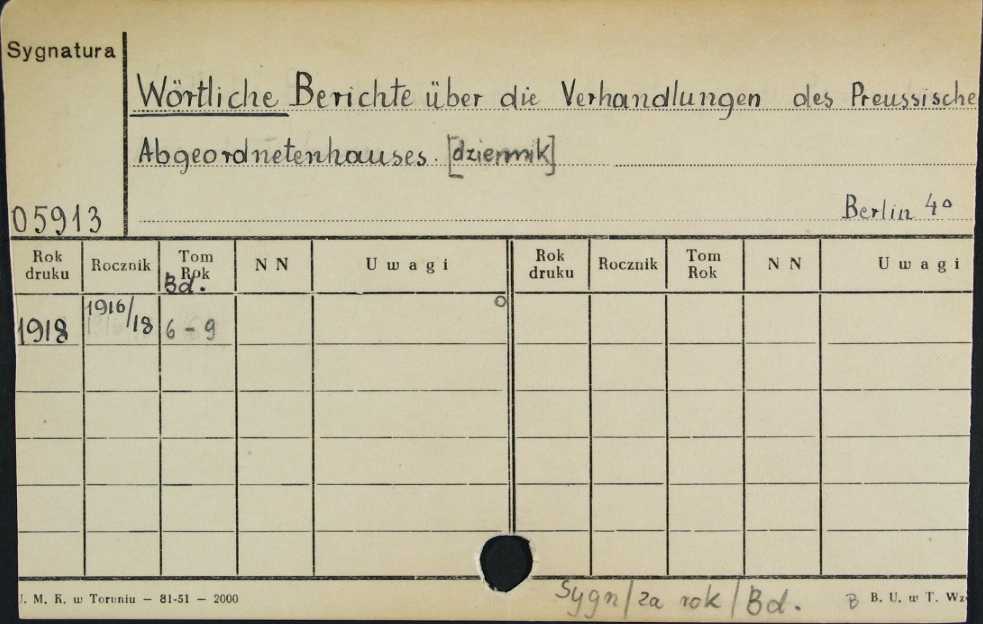 Sygnatura
Wörtliche Berichte über die Verhandlungen des Preussische
Abgeordnetenhauses. [dziennik]
05913
Berlin 4°
Rok druku Rocznik Tom Rok N N Uwagi Rok druku Rocznik Tom Rok N N Uwagi
Bd.
1918 1916/18 6 - 9
Sygn/za rok/Bd.
J. M. K. w Toruniu — 81-51 — 2000
B B. U. w T. Wz